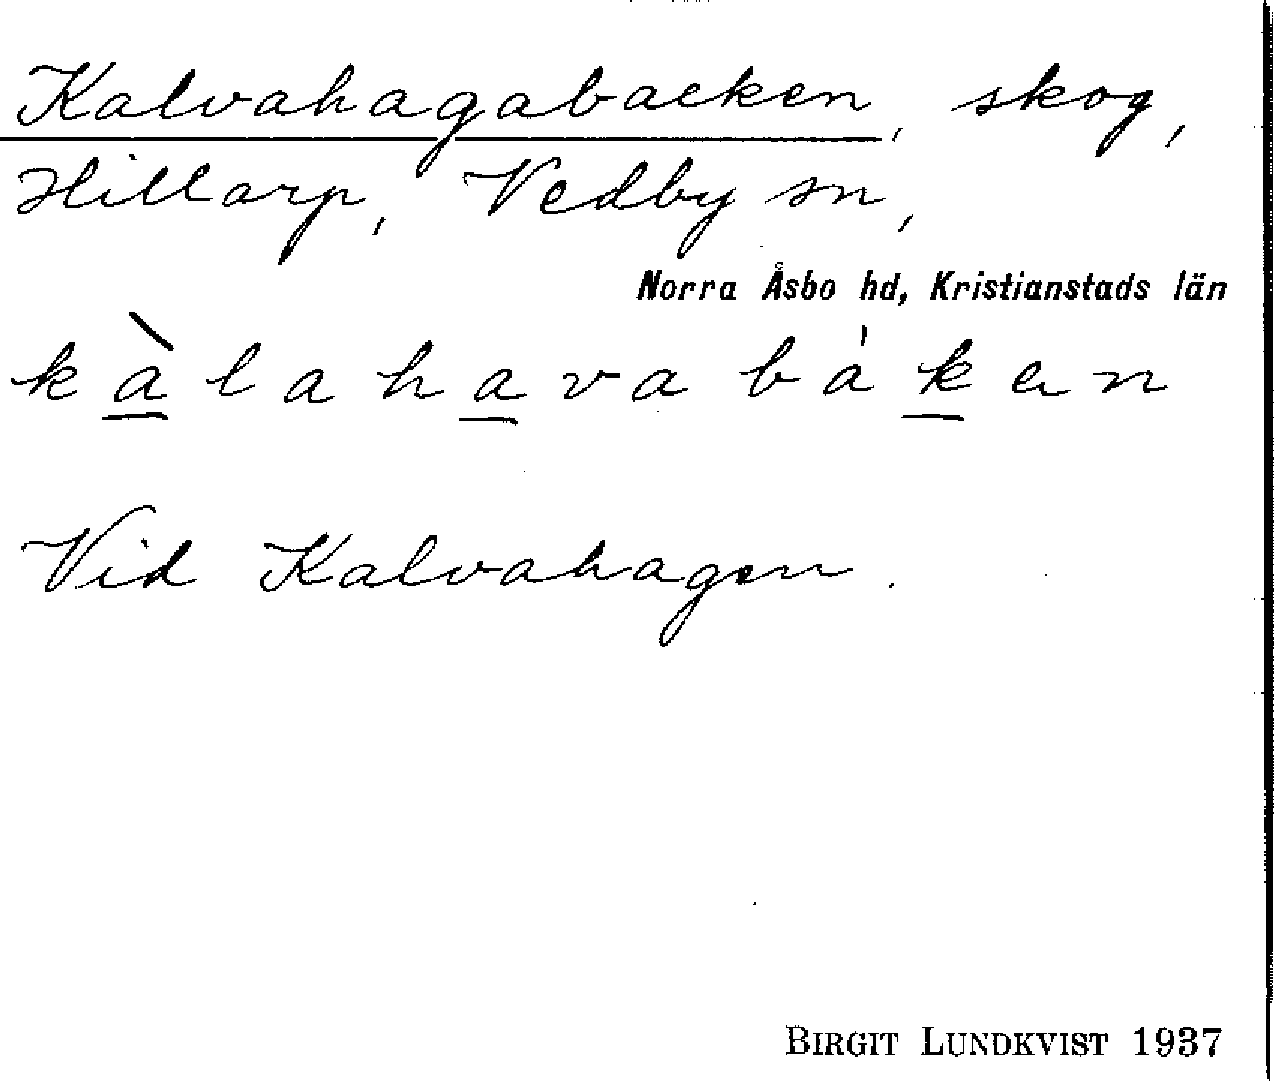 Kalvahagabacken, skog,
Hillarp, Vedby sn,
Norra Åsbo hd, Kristianstads län
kàlahava bákan
Vid Kalvahagen.
BIRGIT LUNDKVIST 1937